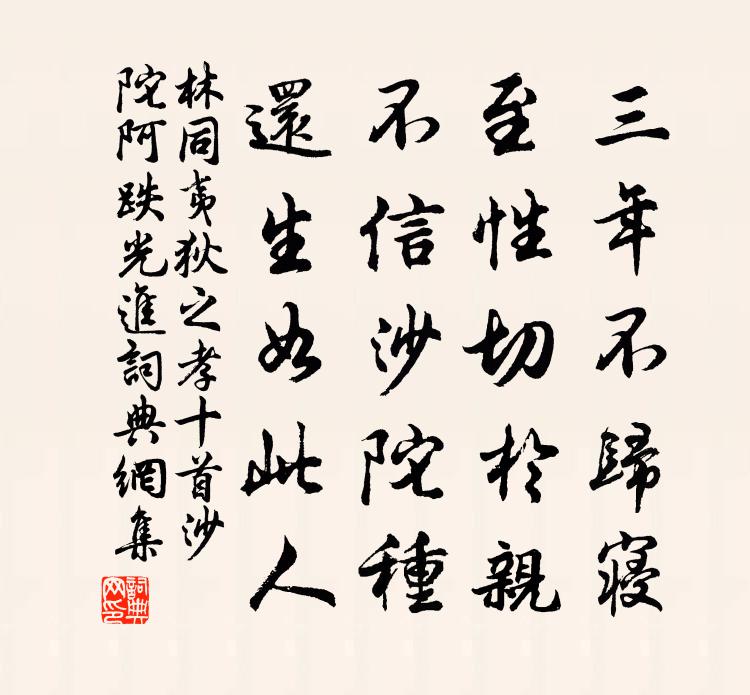 三年不歸寢
至性切於親
不信沙陀種
還生如此人
林同夷狄之孝十首沙
陀阿跌光進詞典網集
詞典網印